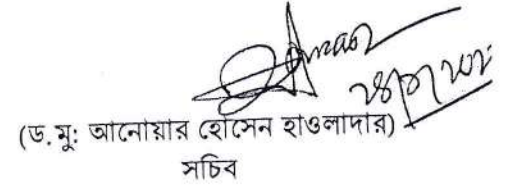 (ড. মু: আনোয়ার হোসেন হাওলাদার)
সচিব